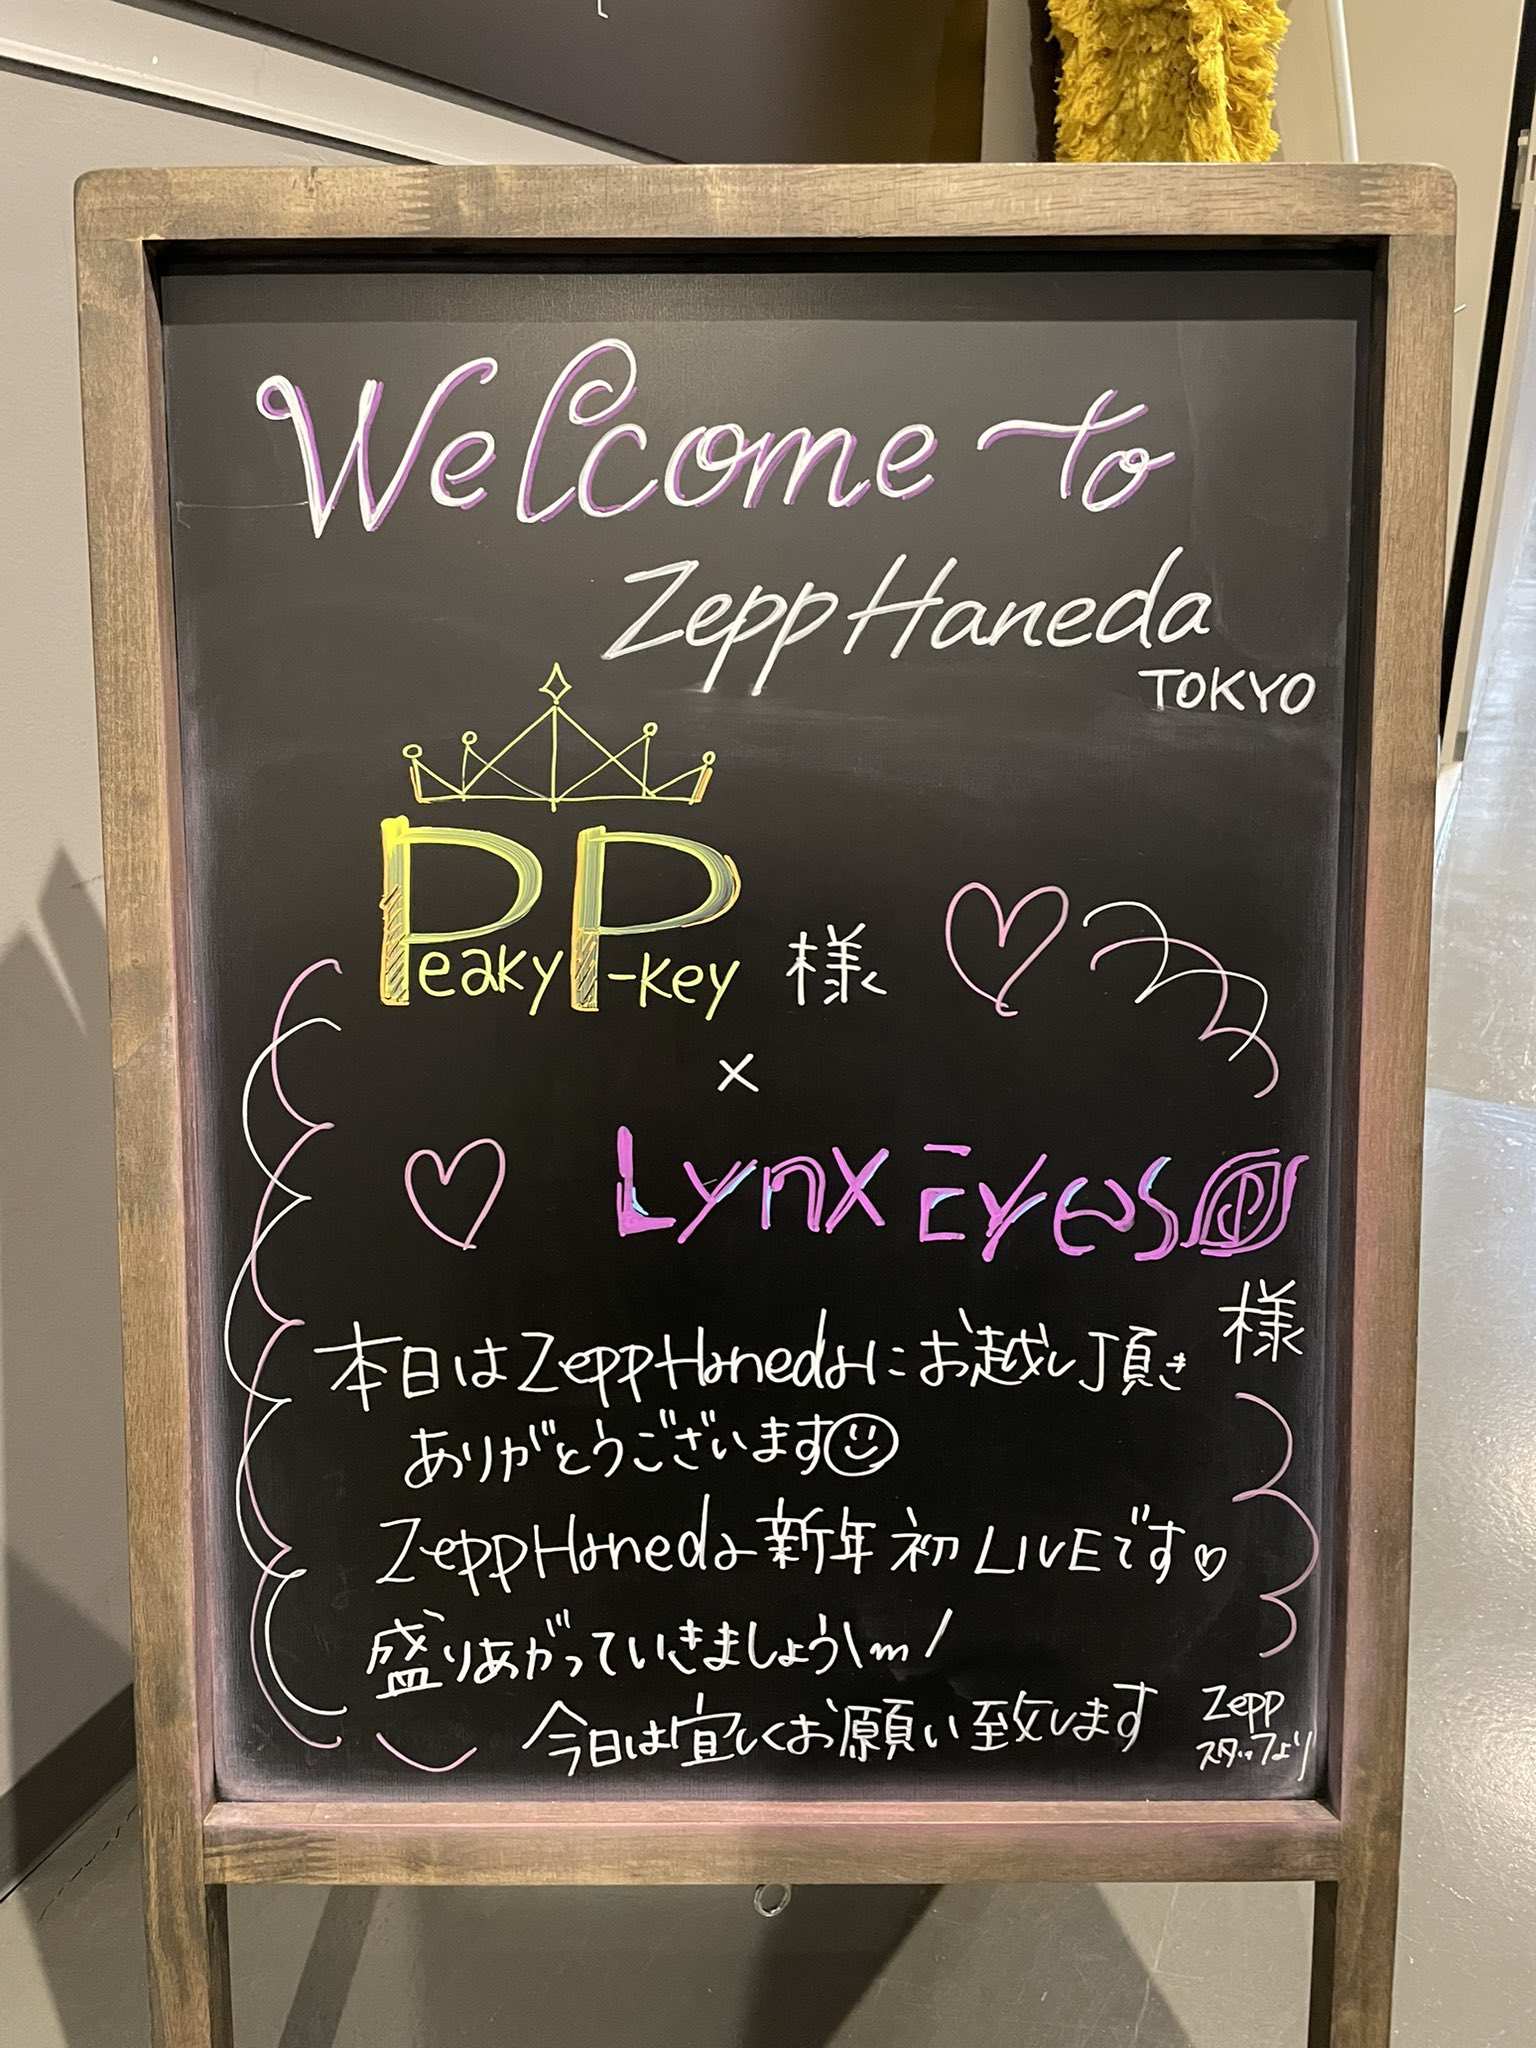 Welcome to
Zepp Haneda
TOKYO
Peaky P-key 様
×
Lynx Eyes
様
本日はZepp Hanedaにお越し頂き
ありがとうございます
Zepp Haneda 新年初LIVEです♡
盛りあがっていきましょう\m/
今日は宜しくお願い致します
Zepp
スタッフより